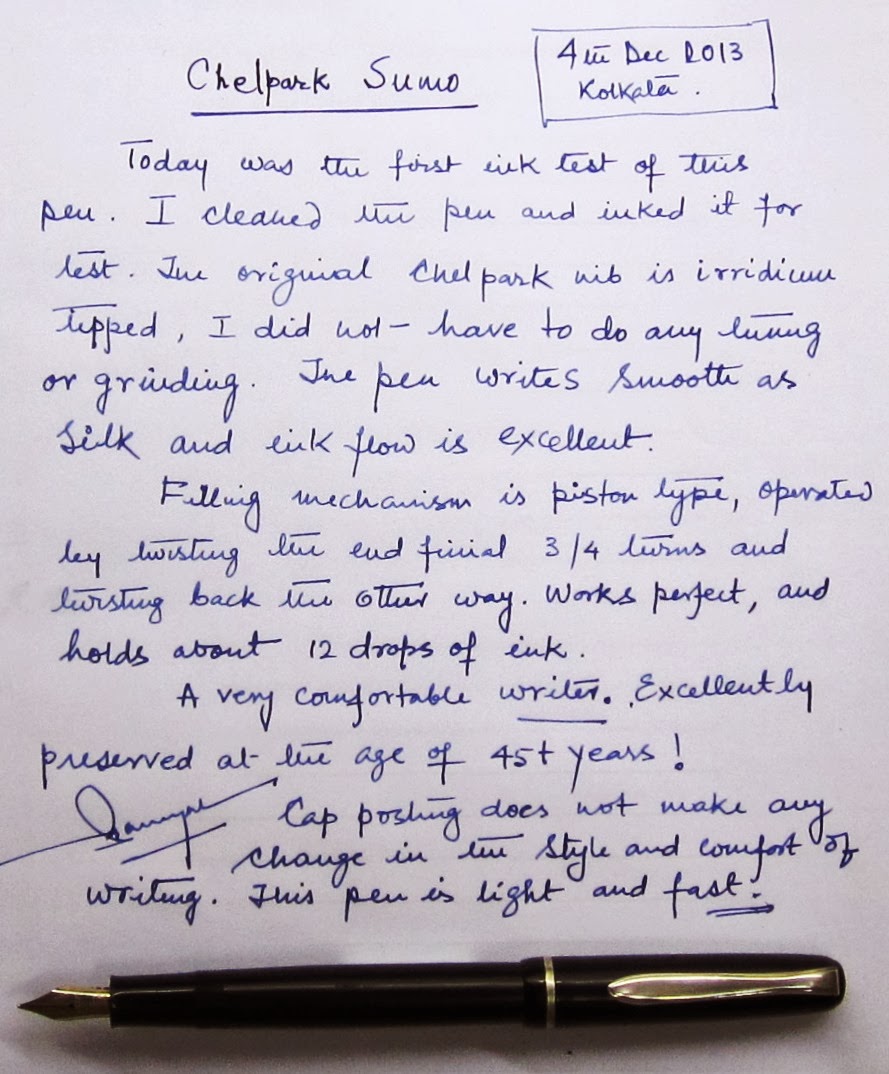 Chelpark Sumo
4th Dec 2013
Kolkata.
Today was the first ink test of this
pen. I cleaned the pen and inked it for
test. The original Chelpark nib is irridium
tipped, I did not have to do any tuning
or grinding. The pen writes smooth as
silk and ink flow is excellent.
Filling mechanism is piston type, operated
by twisting the end finial 3/4 turns and
twisting back the other way. Works perfect, and
holds about 12 drops of ink.
A very comfortable writer. Excellently
preserved at the age of 45+ years!
Cap posting does not make any
change in the style and comfort of
writing. This pen is light and fast.